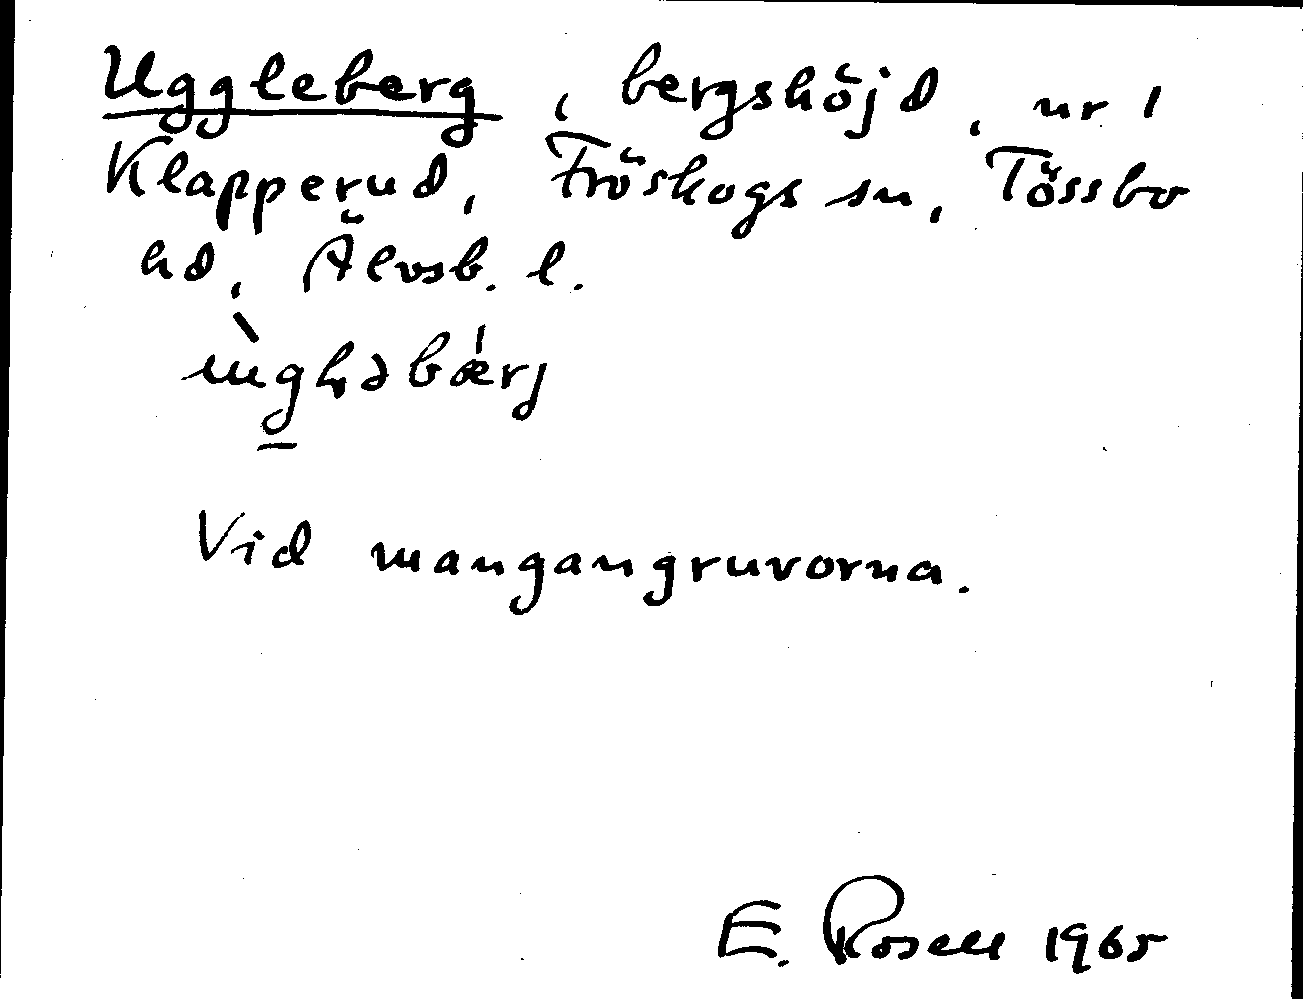 Uggleberg, bergshöjd, nr 1
Klapperud, Fröskogs sn, Tössbo
hd, Älvsb. l.
Vid mangangruvorna.
E. Rosell 1965